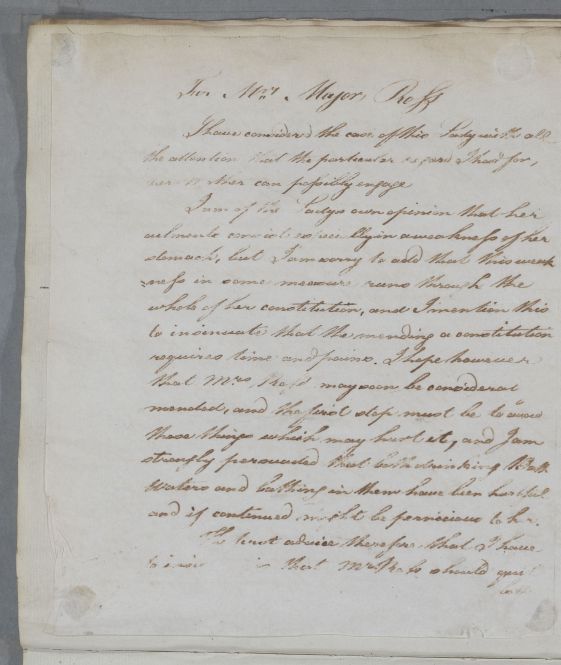 For Mrs. Major Ross
I have considered the case of this Lady with all
the attention that the particular regard I had for,
her can possibly engage
I am of the Ladys own opinion that her
ailments consist especially in a weakness of her
stomach, but I am sorry to add that this weak
ness in some measure runs through the
whole of her constitution, and I mention this
to insinuate that the mending a constitution
requires time and pains. I hope however
that Mrs. Ross may soon be considerat
mended, and the first step must be to avoid
those things which may hurt it, and I am
strongly persuaded that both drinking Bath
Waters and bathing in them have been hurtful
and if continued might be pernicious to her.
The first advice therefore that I have
to is that Mrs Ross should quit